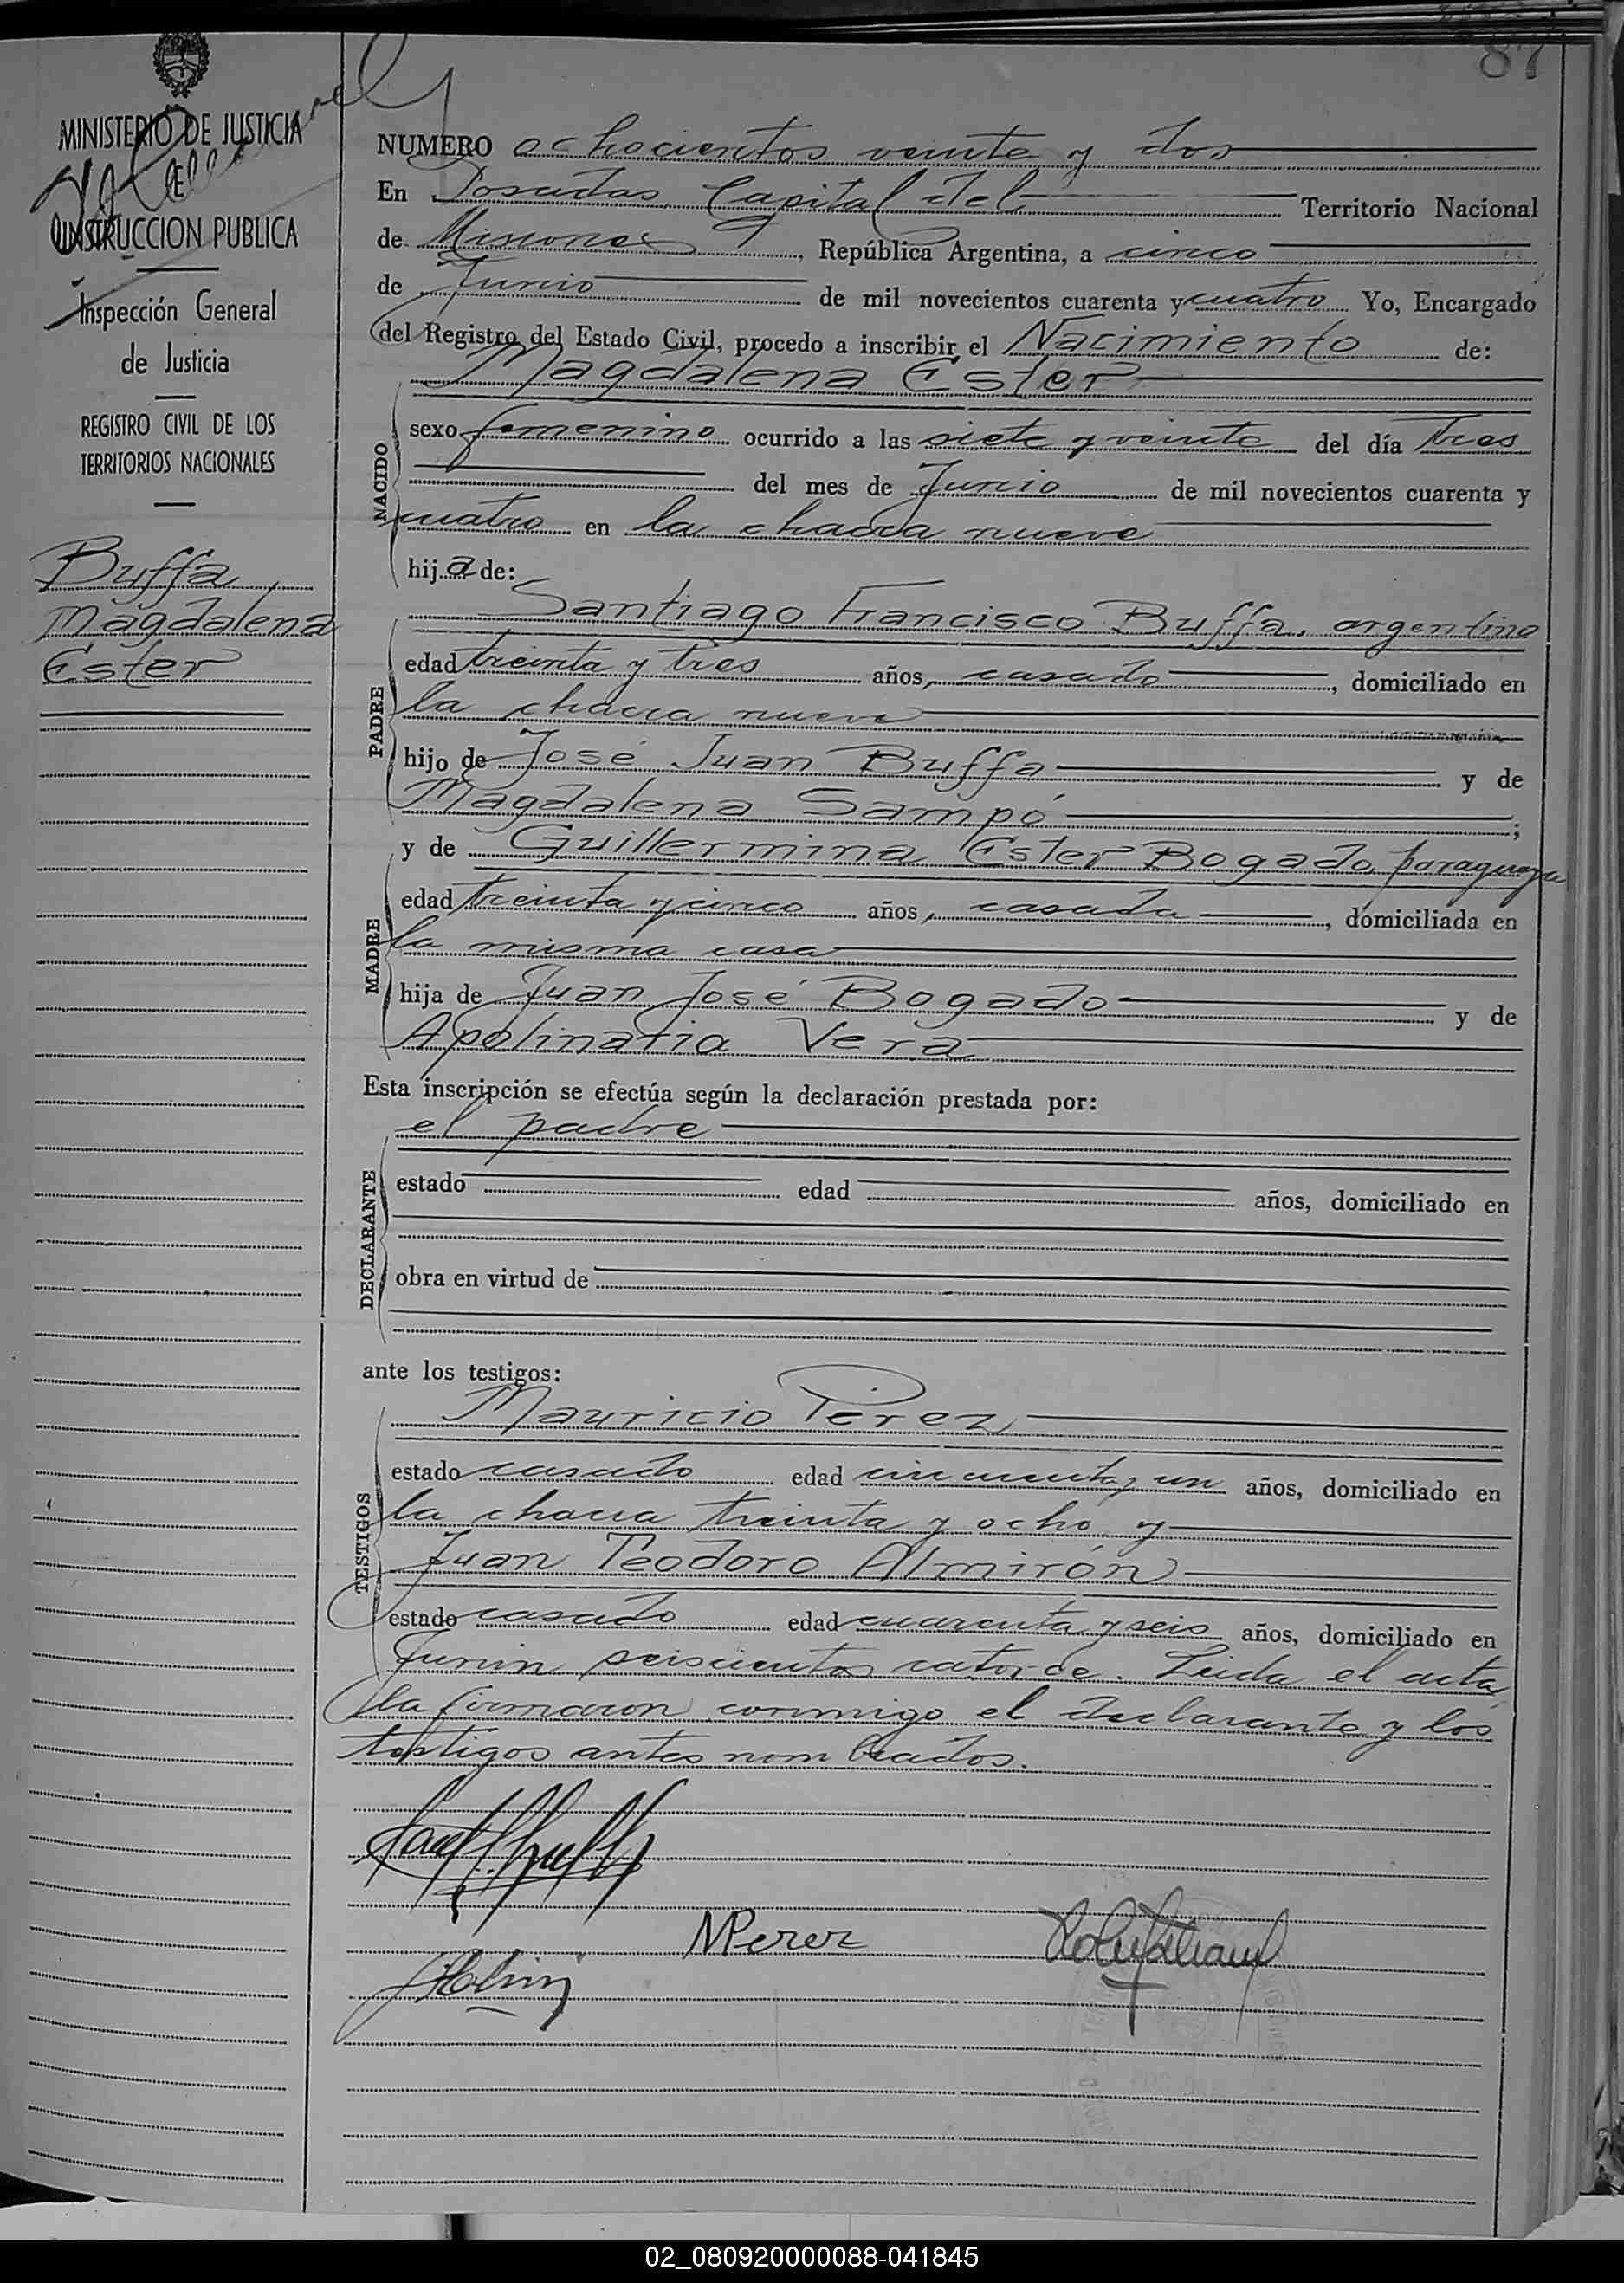 87
MINISTERIO DE JUSTICIA
E
INSTRUCCION PUBLICA
Inspección General
de Justicia
REGISTRO CIVIL DE LOS
TERRITORIOS NACIONALES
Buffa,
Magdalena
Ester
NUMERO ochocientos veinte y dos
En Posadas, Capital del Territorio Nacional
de Misiones, República Argentina, a cinco
de Junio de mil novecientos cuarenta y cuatro Yo, Encargado
del Registro del Estado Civil, procedo a inscribir el Nacimiento de:
Magdalena Ester
NACIDO
sexo femenino ocurrido a las siete y veinte del día tres
del mes de Junio de mil novecientos cuarenta y
cuatro en la chacra nueve
hija de:
Santiago Francisco Buffa, argentino
PADRE
edad treinta y tres años, casado, domiciliado en
la chacra nueve
hijo de José Juan Buffa y de
Magdalena Sampó;
y de Guillermina Ester Bogado, paraguaya
MADRE
edad treinta y cinco años, casada, domiciliada en
la misma casa
hija de Juan José Bogado y de
Apolinaria Vera
Esta inscripción se efectúa según la declaración prestada por:
el padre
DECLARANTE
estado edad años, domiciliado en
obra en virtud de
ante los testigos:
Mauricio Pérez
TESTIGOS
estado casado edad cincuenta y un años, domiciliado en
la chacra treinta y ocho y
Juan Teodoro Almirón
estado casado edad cuarenta y seis años, domiciliado en
Junin seiscientos catorce. Leida el acta
la firmaron conmigo el declarante y los
testigos antes nombrados.
MPerez
02_080920000088-041845